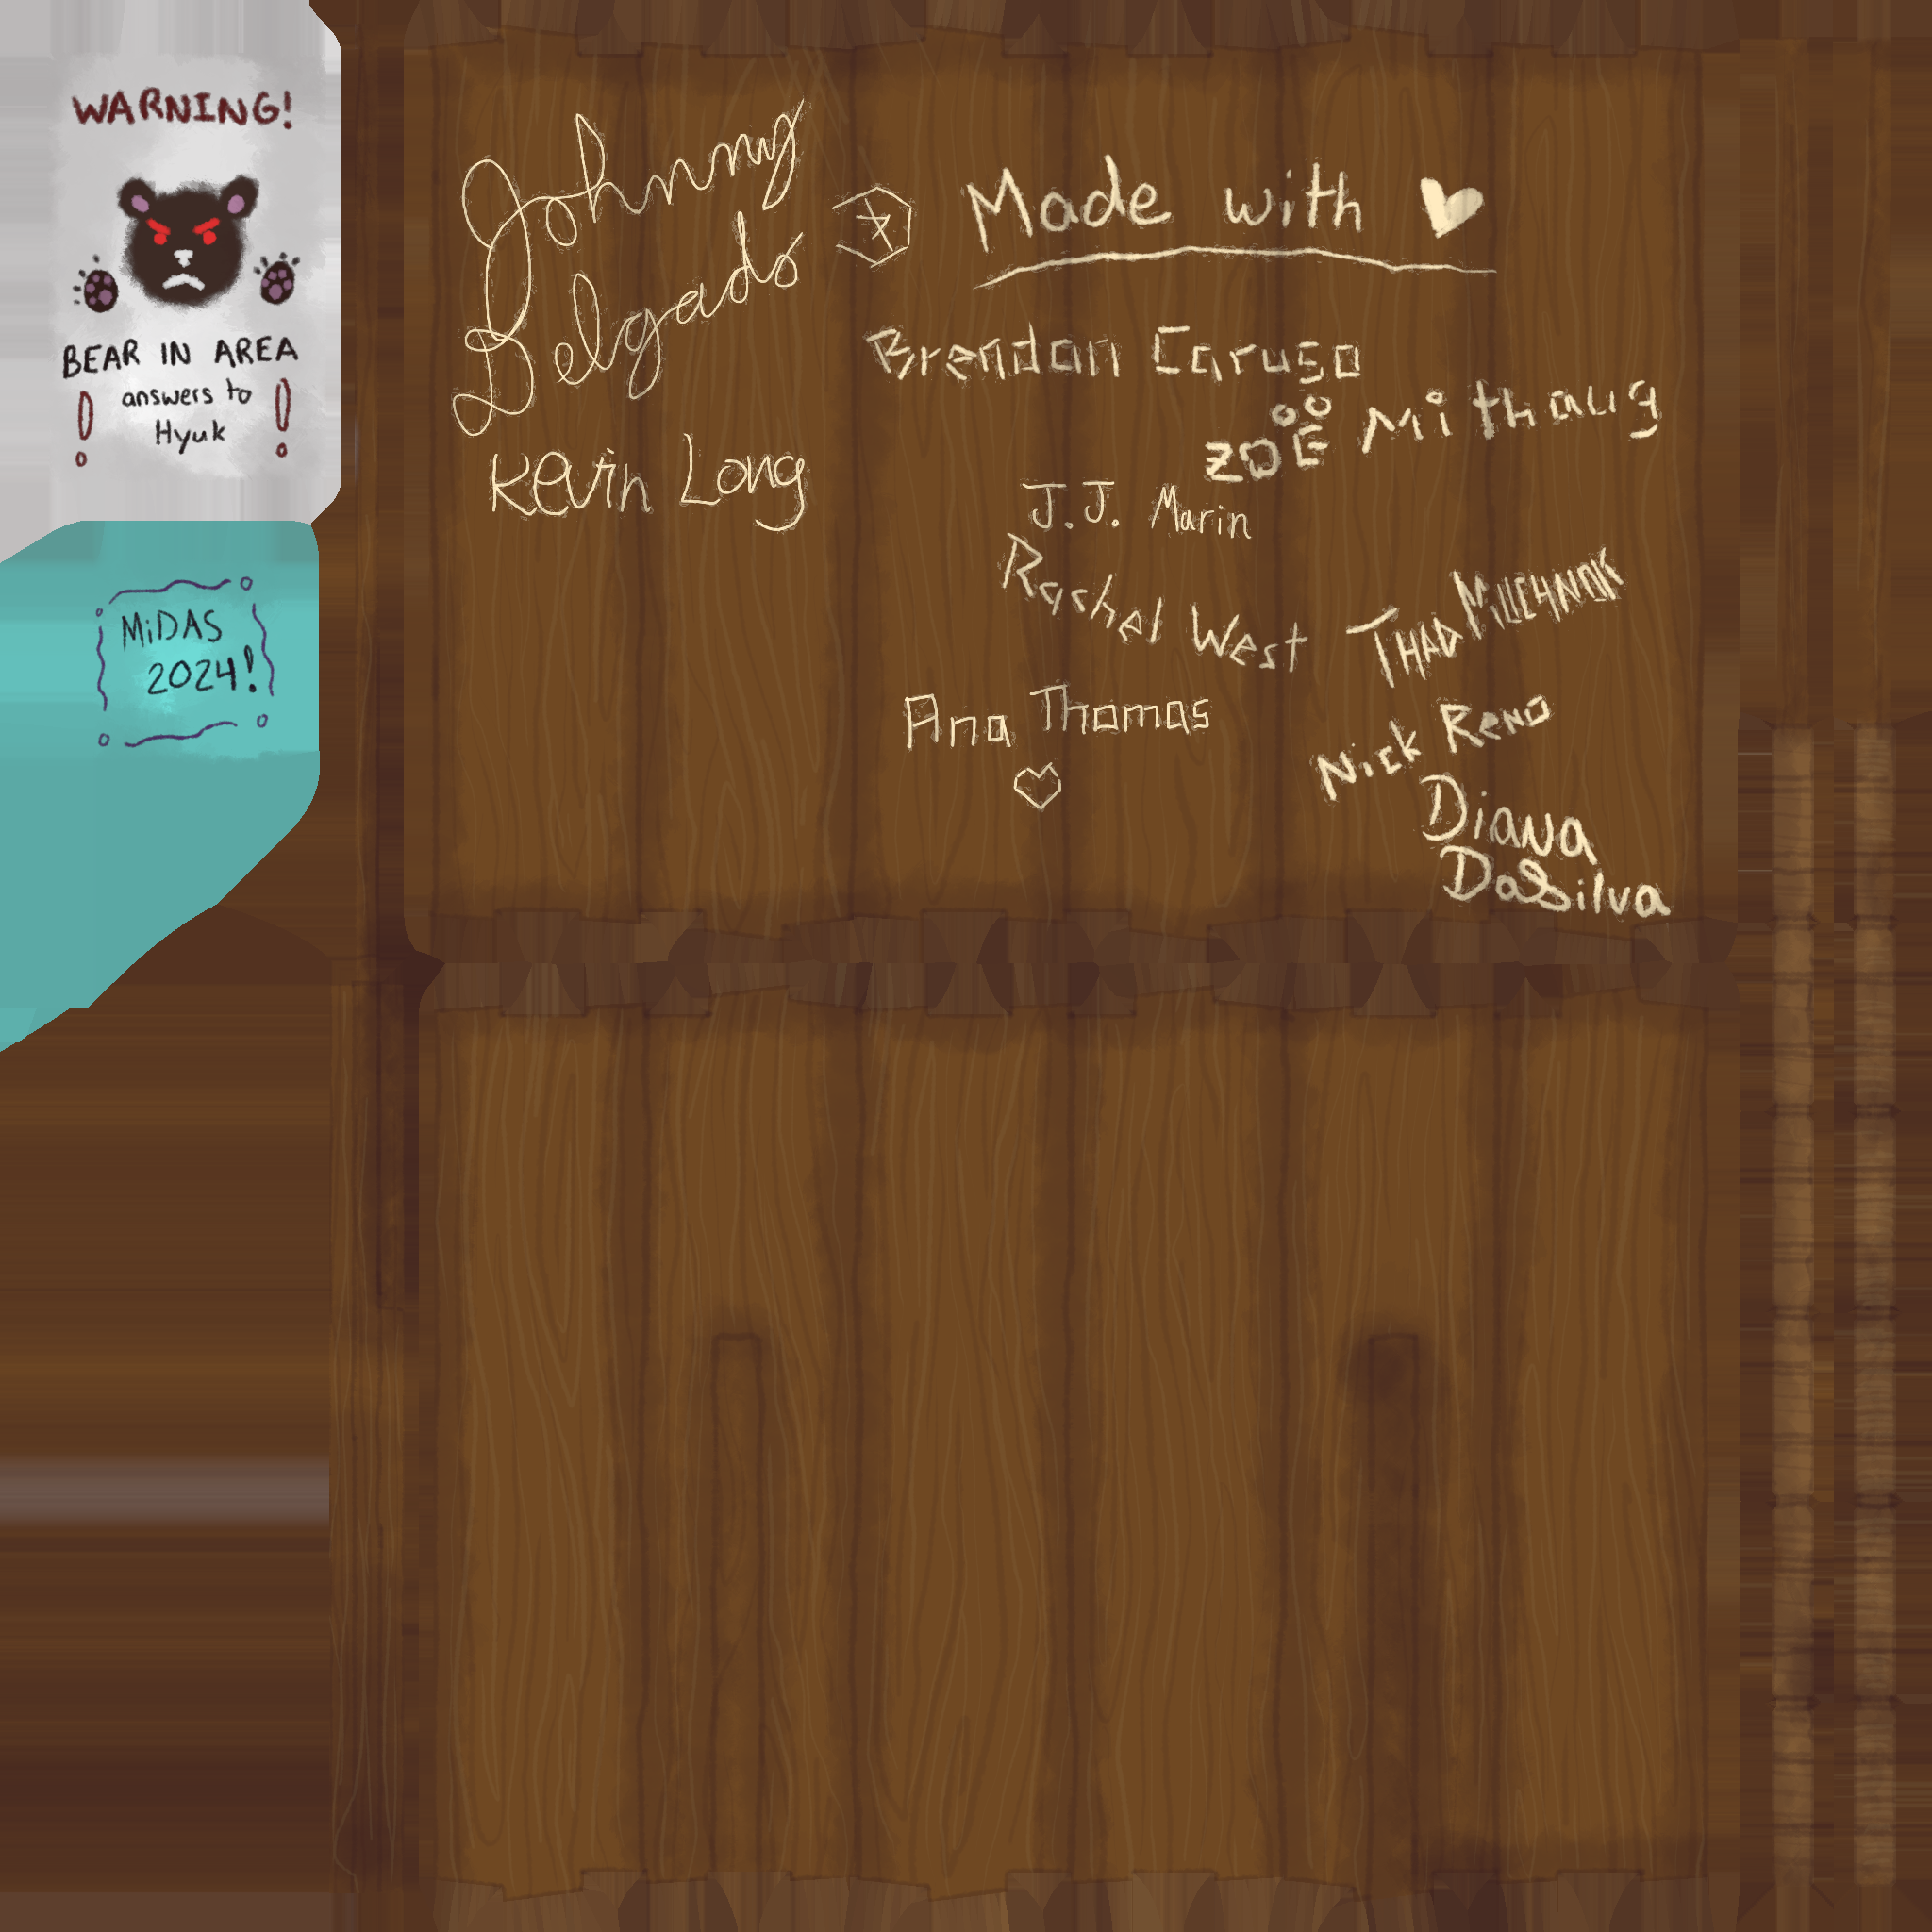 WARNING!
BEAR IN AREA
answers to
Hyuk
MiDAS
2024!
Johnny
Delgado
Kevin Long
Made with
Brendan Caruso
ZOË Mithaug
J.J. Marin
Rachel West
THAD MILLCHNOK
Ana Thomas
Nick Reno
Diana
DaSilva